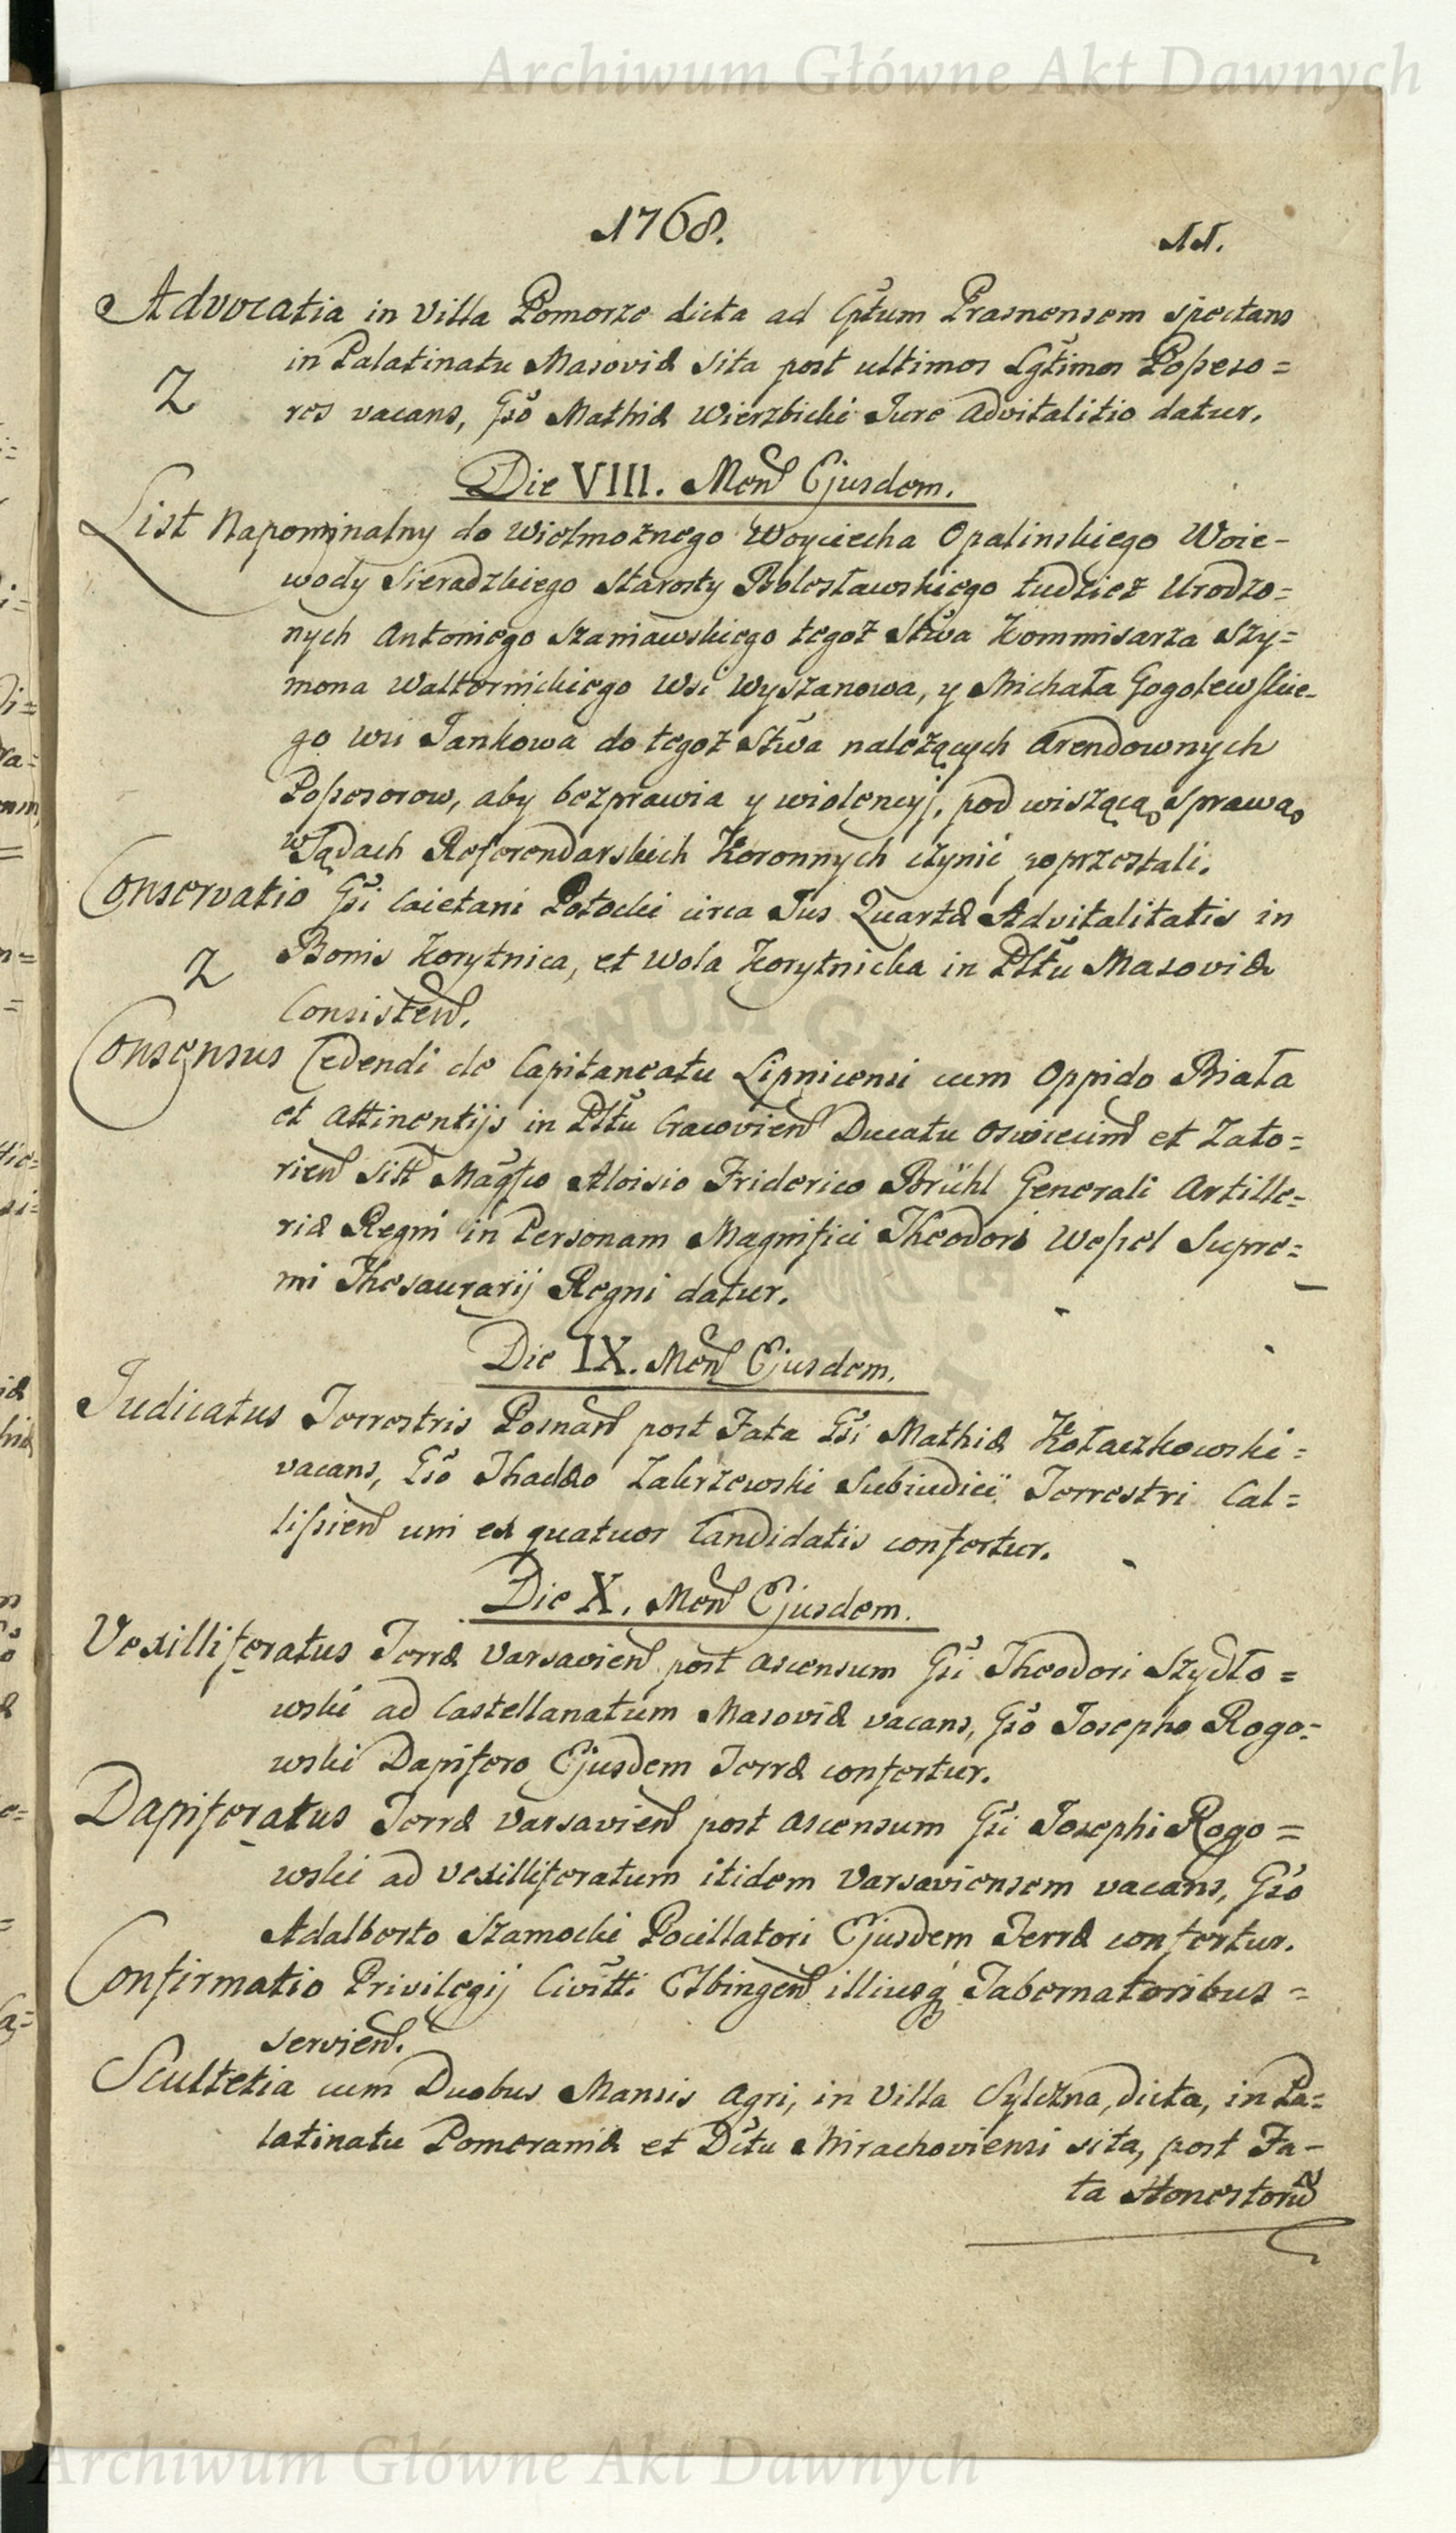 Archiwum Główne Akt Dawnych
1768.
11.
Advocatia in Villa Pomorze dicta ad Cptũm Prasnensem spectans
in Palatinatu Masoviæ sita post ultimos Lgt̃imos Possesso=
2
res vacans, Gso Mathiæ Wierzbicki Jure Advitalitio datur.
Die VIII. Men Ejusdem.
List Napominalny do Wielmożnego Woyciecha Opalinskiego Woie-
wody Sieradzkiego Starosty Bolesławskiego tudzież Urodzo=
nych Antoniego Szaniawskiego tegoż Stwa Kommisarza Szy=
mona Waltornickiego Wsi Wyszanowa, y Michała Gogolewskie-
go wsi Jankowa do tegoż Stwa należących Arendownych
Possesorow, aby bezprawia y wiolencyj, pod wiszącą sprawą
w Sądach Referendarskich Koronnych czynić zoprzestali.
Conservatio Gsi Caietani Potocki circa Jus Quartæ Advitalitatis in
2
Bonis Korytnica, et Wola Korytnicka in Plttu Masoviæ
Consisten.
Consensus Cedendi de Capitaneatu Lipnicensi cum Oppido Biała
et Attinentijs in Plttu Cracovien Ducatu Oswiecim et Zato=
rien Sitt Magfco Aloisio Friderico Brühl Generali Artille=
riæ Regni in Personam Magnifici Theodori Wessel Supre=
mi Thesaurarij Regni datur.
Die IX. Men Ejusdem.
Judicatus Terrestris Posnan post Fata Gsi Mathiæ Kołaczkowski=
vacans, Gso Thaddæo Zakrzewski Subiudici Terrestri Cal=
lissien uni ex quatuor Candidatis confertur.
Die X. Men Ejusdem.
Vexilliferatus Terræ Varsavien post Ascensum Gsi Theodori Szydło=
wski ad Castellanatum Masoviæ vacans, Gso Josepho Rogo=
wski Dapifero Ejusdem Terræ confertur.
Dapiferatus Terræ Varsavien post Ascensum Gsi Josephi Rogo=
wski ad Vexilliferatum itidem Varsaviensem vacans, Gso
Adalberto Szamocki Pocillatori Ejusdem Terræ confertur.
Confirmatio Privilegij Civitti Elbingen illiusq Tabernatoribus=
servien.
Scultetia cum Duobus Mansis Agri, in Villa Sylczna, dicta, in Pa=
latinatu Pomeraniæ et Dctu Mirachoviensi sita, post Fa-
ta Honestorũ
Archiwum Główne Akt Dawnych